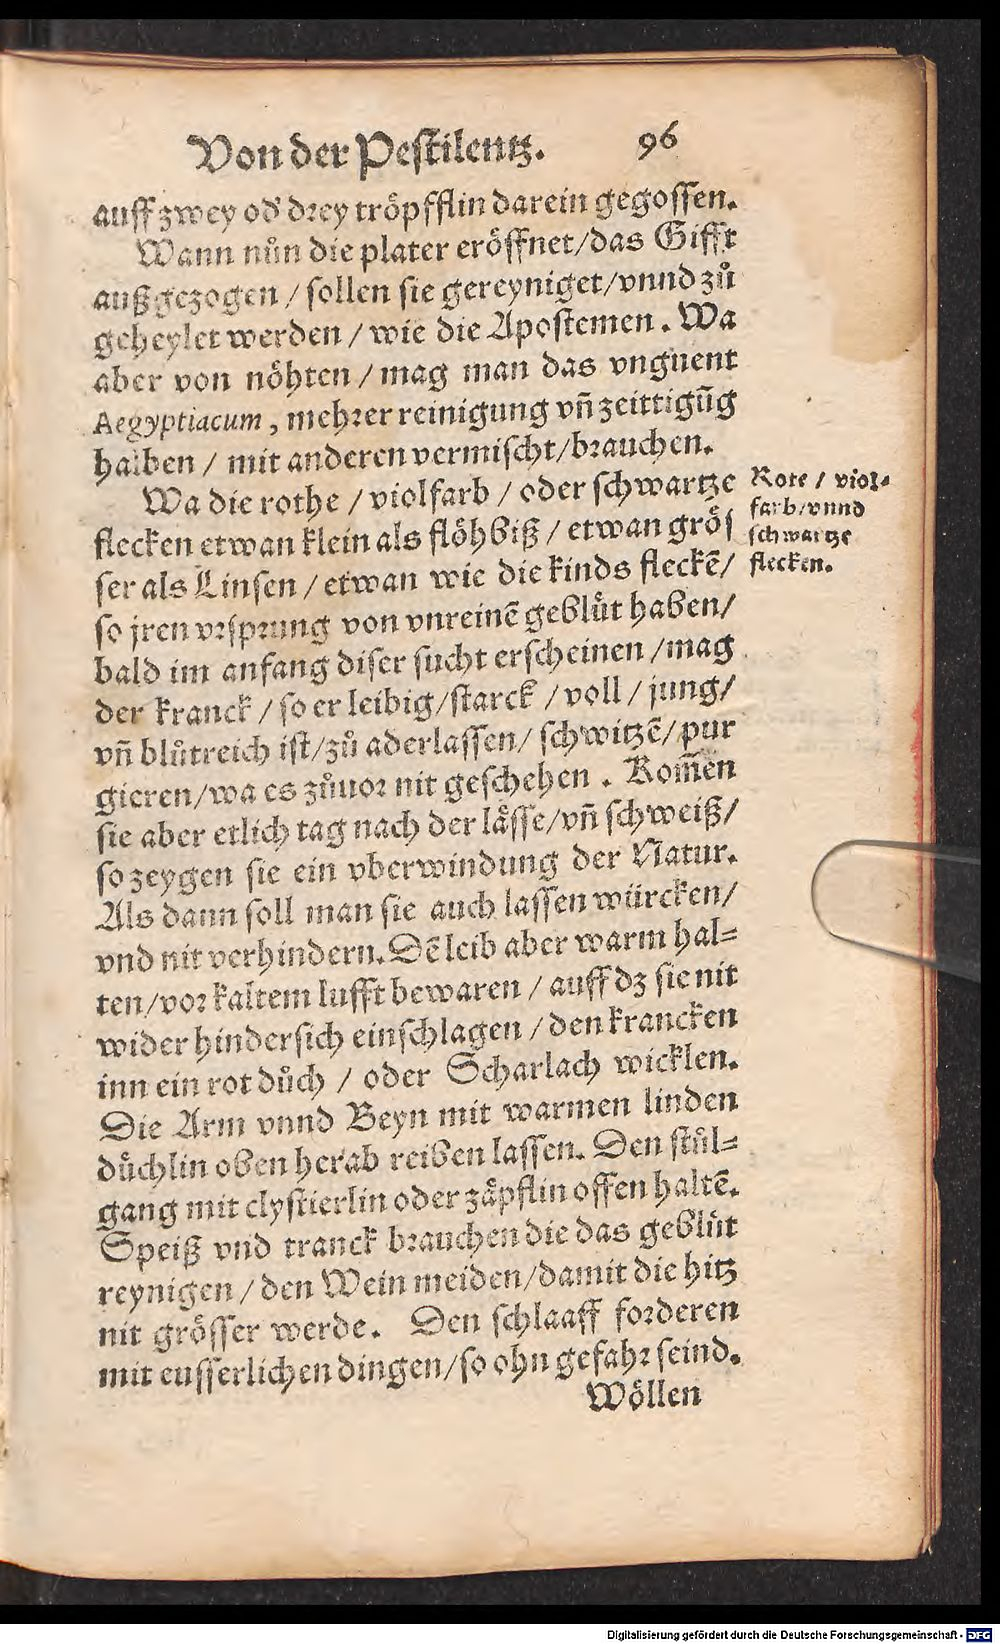 Von der Pestilentz. 96
auff zwey od' drey tröpfflin darein gegossen.
Wann nůn die plater eröffnet/das Gifft
außgezogen / sollen sie gereyniget/vnnd zů
geheylet werden / wie die Apostemen. Wa
aber von nöhten / mag man das vnguent
Aegyptiacum, mehrer reinigung vn̄ zeittigūg
halben / mit anderen vermischt/brauchen.
Wa die rothe / violfarb / oder schwartze
flecken etwan klein als flöhbiß / etwan grös
ser als Linsen / etwan wie die kinds fleckē/
so jren vrsprung von vnreinē geblüt haben/
bald im anfang diser sucht erscheinen /mag
der kranck / so er leibig/starck / voll / jung/
vn̄ blůtreich ist/zů aderlassen/ schwitzē/ pur
gieren/wa es zůuor nit geschehen . Kom̄en
sie aber etlich tag nach der lässe/vn̄ schweiß/
so zeygen sie ein vberwindung der Natur.
Als dann soll man sie auch lassen würcken/
vnd nit verhindern. Dē leib aber warm hal=
ten/vor kaltem lufft bewaren / auff dz sie nit
wider hindersich einschlagen / den krancken
inn ein rot důch / oder Scharlach wicklen.
Die Arm vnnd Beyn mit warmen linden
düchlin oben herab reiben lassen. Den stůl=
gang mit clystierlin oder zäpflin offen haltē.
Speiß vnd tranck brauchen die das geblüt
reynigen / den Wein meiden/damit die hitz
nit grösser werde. Den schlaaff forderen
mit eusserlichen dingen/so ohn gefahr seind.
Wöllen
Rote / viol=
farb/vnnd
schwartze
flecken.
Digitalisierung gefördert durch die Deutsche Forschungsgemeinschaft - DFG